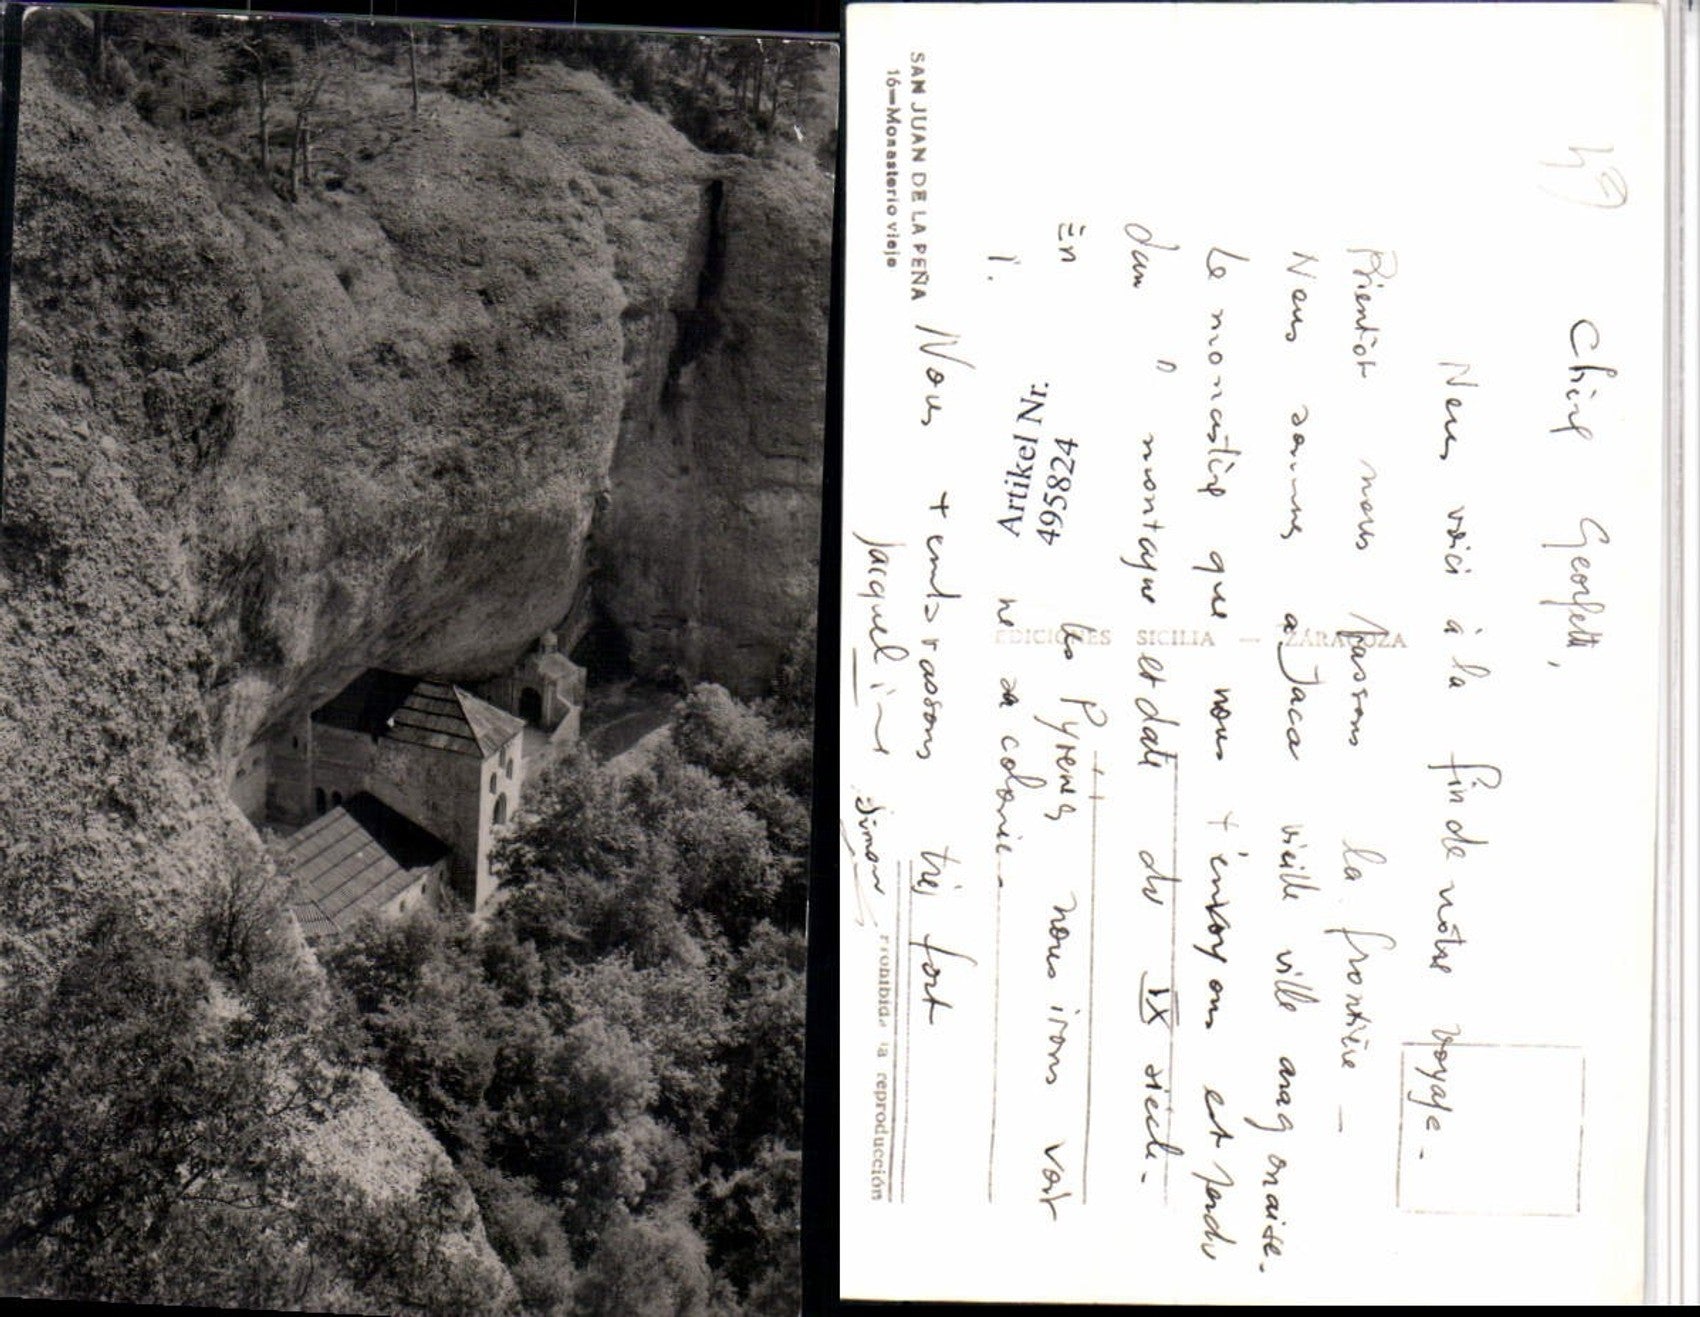 49
Chère Georgette,
Nous voici à la fin de notre voyage -
Bientôt nous passerons la frontière -
Nous sommes à Jaca vieille ville aragonaise.
Le monastère que nous t'envoyons est perdu
dans la montagne et date du IX siècle.
En les Pyrénées nous irons voir
sa colonie -
Nous t'embrassons très fort
Jacqueline Simone
SAN JUAN DE LA PEÑA
16—Monasterio viejo
Artikel Nr.
4958274
EDICIONES SICILIA — ZARAGOZA
Prohibida la reproducción